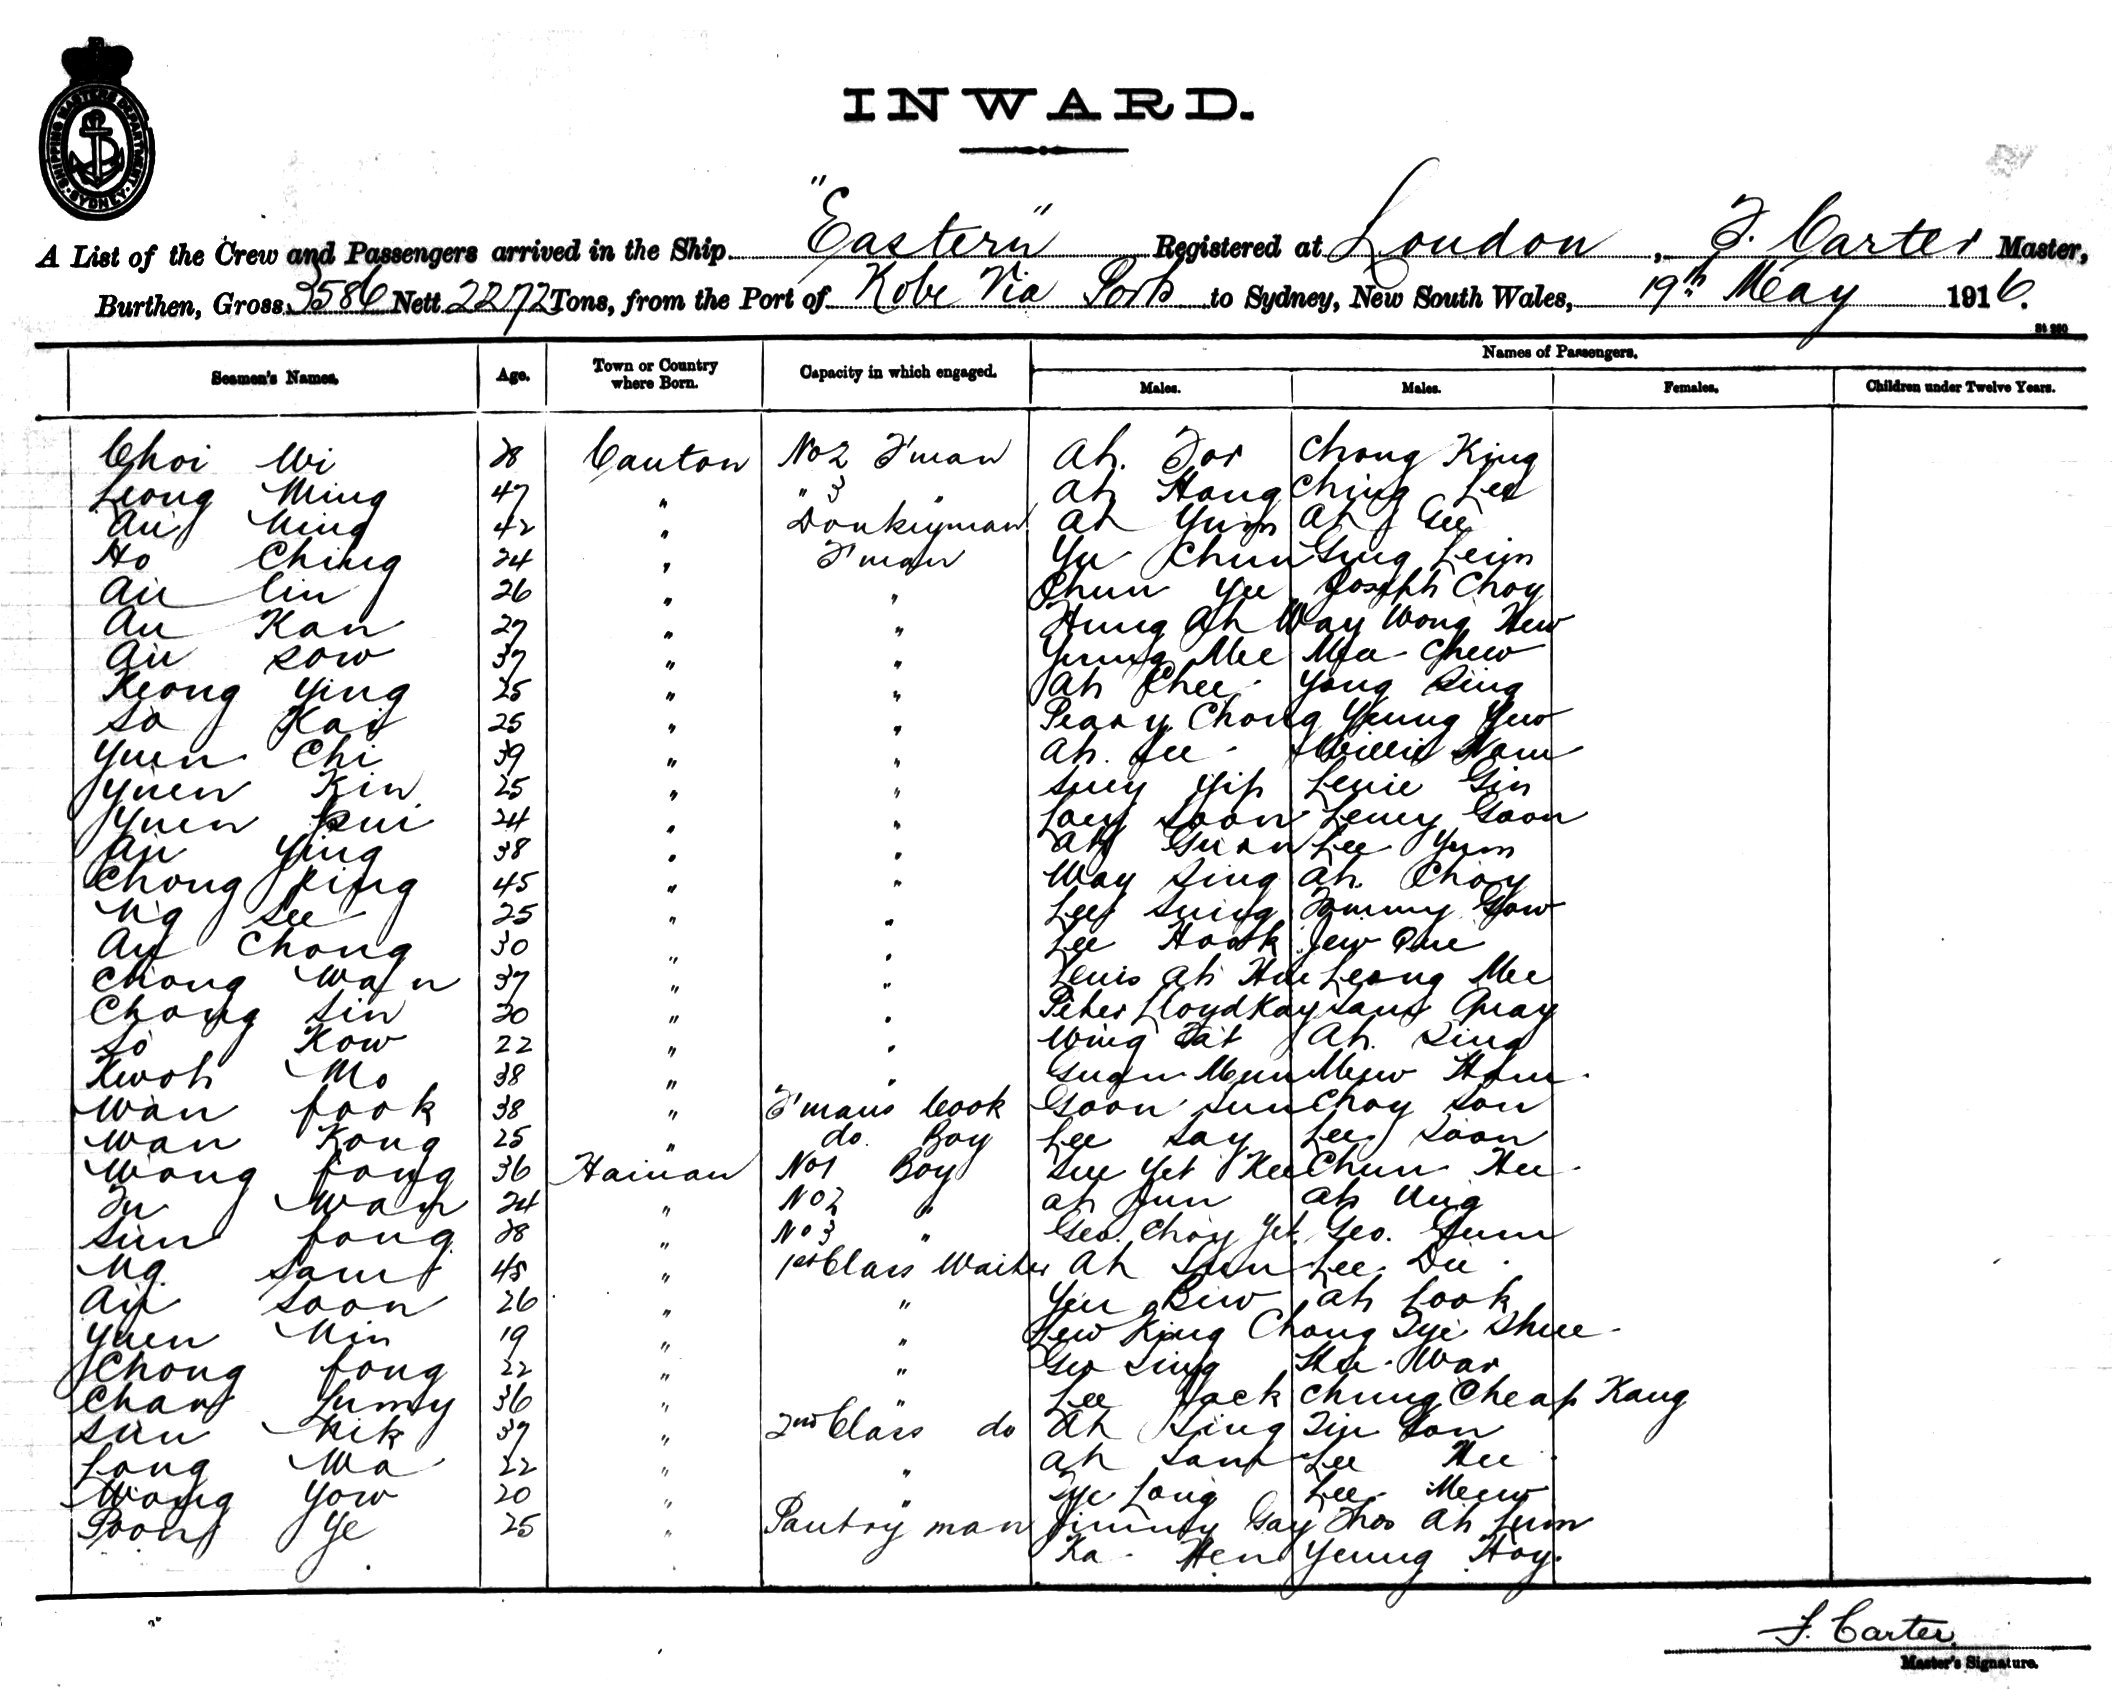 SHIPPING MASTERS DEPARTMENT · SYDNEY
INWARD.
A List of the Crew and Passengers arrived in the Ship "Eastern" Registered at London, F. Carter Master,
Burthen, Gross 3586 Nett 2272 Tons, from the Port of Kobe Via Ports to Sydney, New South Wales, 19th May 1916.
Names of Passengers.
Seamen's Names. Age. Town or Country where Born. Capacity in which engaged. Males. Males. Females. Children under Twelve Years.
Choi Wi 28 Canton No 2 F'man Ah. For Chong King
Leong Ming 47 " " 3 " Ah Hang Ching Lee
Au Ning 42 " Donkeyman Ah Yum Ah Gee
Ho Ching 24 " F'man Yu Chun Gung Leim
Au Cun 26 " " Chun Yee Joseph Choy
Au Kan 27 " " Hung Ah Way Wong Hew
Au Sow 37 " " Young Mee Mea Chew
Keong Ying 25 " " Ah Chee Yong Sing
So Kai 25 " " Chong Yeung Yew
Yuen Chi 39 " " Ah. See Willie Nam
Yuen Kin 25 " " Suey Yip Leuie Gin
Yuen Kui 24 " " Loey Soon Leney Goon
Au Ying 38 " " Ah Guan Lee Yum
Chong Ping 45 " " Way Sing Ah. Choy
Ng See 25 " " Lee Suing Tommy Gow
Au Chong 30 " " Lee Hook Jew Que
Chong Wan 37 " " Leuis Ah Hue Leong Mee
Chong Sin 20 " " Peter Lloyd Kay Sam Quay
So Kow 22 " " Wing Tat Ah. Sing
Kwoh Mo 38 " " Guan Mun Mew Hom
Wan Fook 38 " F'mans Cook Goon Sun Choy Son
Wan Kong 25 " do. Boy Lee Say Lee Soon
Wong Fong 36 Hainan No 1 Boy Sue Yet Kee Chun Hee
Fu Wan 24 " No 2 " Ah Jun Ah Ung
Sun Fong 28 " No 3 " Geo. Choy Yet Geo. Gum
Ng Sam 45 " 1st Class Waiter Ah Sun Lee Du
Au Soon 26 " " Yin Biw Ah Fook
Yuen Min 19 " " Lew King Chong Tye Shue
Chong Fong 22 " " Geo Sing Hee War
Chan Lumy 36 " " Lee Jack Chung Cheap Kang
Sun Kik 37 " 2nd Class do Ah Sing Tin Son
Long Wa 22 " " Ah Sam Lee Hee
Wong Yow 20 " " Tye Long Lee Meew
Poon Ye 25 " Pantry man Jimmy Gay Thos Ah Lum
Ka Hen Yeung Hoy.
F. Carter.
Master's Signature.